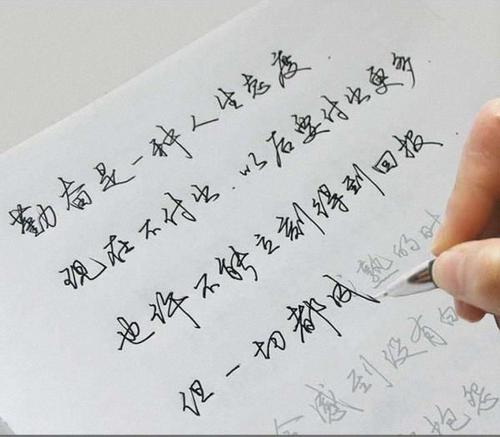 勤奋是一种人生态度.
现在不付出.以后要付出更多
也许不能立刻得到回报
但一切都成熟的时
会感到没有白
抱怨